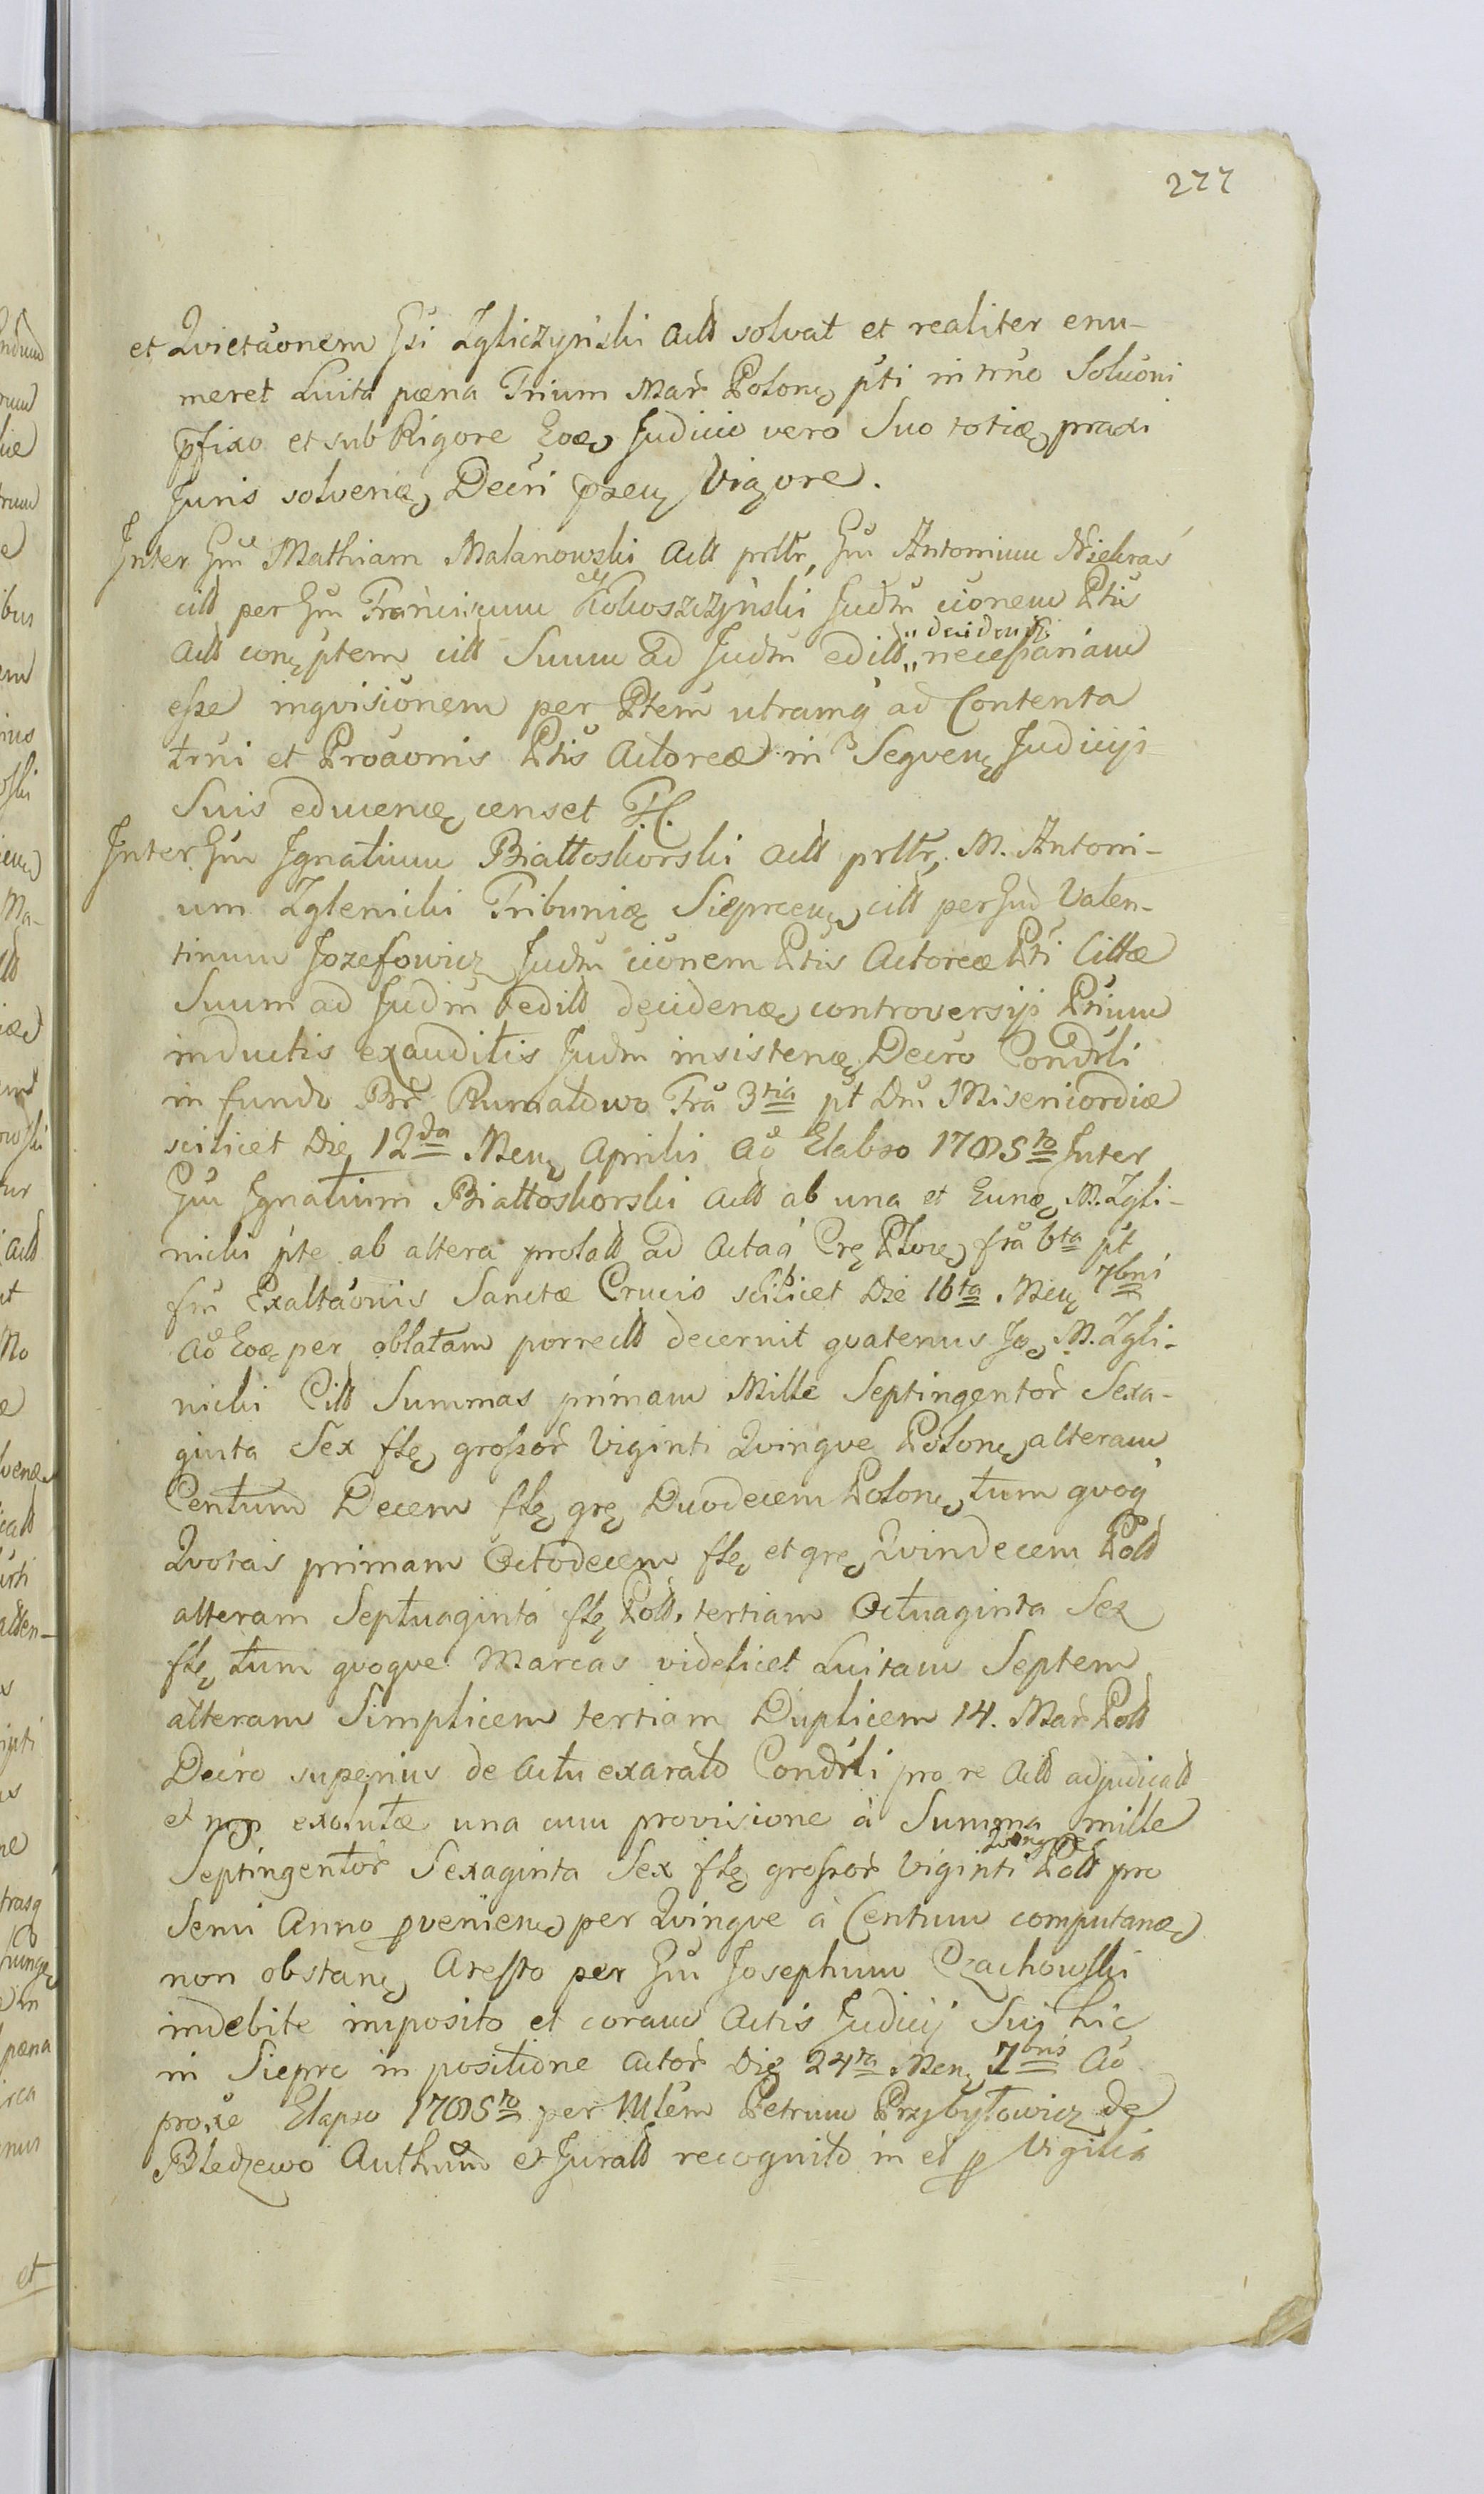 277
et Qvietãonem Gsi Zgliczyński Actt solvat et realiter enu-
meret Luita pæna Trium Mar Polon, pti in trno Soluoni
pfixo et sub Rigore Eoæ, Judicio vero Suo toties praxi
Juris solvenæ, Decri psen Vigore.
Inter Gm Mathiam Malanowski Actt prltr, Gm Antonium Niekraś
citt per Gm Franciscum Kokoszczyński Judm cionem Ptis
Actt conq ptem citt Suum ad Judm editt „ necessariam
„ decidend
esse inqvisionem per Ptem utramq ad Contenta
trni et Proãonis Ptis Actoreæ in Seqven Judicijs
Suis educenæ, censet P.C.
Inter Gm Ignatium Białłoskorski Actt prltr, M. Antoni-
um Zglenicki Tribuniæ Sieprcen, citt per Gm Valen-
tinum Jozefowicz Judm cionem Ptis Actoreæ Pti Cittæ
Suum ad Judm editt decidenæ, controversijs Ptium
inductis exauditis Judm insistenæ, Decro Condrli
in fundo Bnr Rumaldwo Fra 3tia pt Dm Misericordiæ
scilicet Die 12da Men Aprilis Ao Elabso 1705to Inter
Gm Ignatium Białłoskorski Actt ab una et Eunæ, M. Zgli-
nicki pte ab altera prolatt ad Actaq Crę Ploce, fra 6ta pt
fm Exaltãonis Sanctæ Crucis scilicet Die 16ta Men 7bris
Ao Eoæ per oblatam porrectt decernit qvatenus Jo, M. Zgli-
nicki Citt Summas primam Mille Septingentor Sexa-
ginta Sex flę, grossor Viginti Qvinqve Polon, alteram
Centum Decem flę grę Duodecem Polon, tum qvoq
Qvotas primam Octodecem flę et grę, Qvindecem Poll
alteram Septuaginta flę Poll. tertiam Octuaginta Sex
flę tum qvoqve Marcas videlicet Luitam Septem
alteram Simplicem tertiam Duplicem 14. Mar Poll
Decro superius de Actu exarato Condrli pro re Actt adjudicatt
et non exolutæ una cum provisione à Summa mille
Septingentor Sexaginta Sex flę grossor Viginti Qvinqve Poll pro
Semi Anno pvenien, per Qvinqve à Centum computanæ,
non obstan, Aresto per Gm Josephum Czachowski
indebite imposito et coram Actis Judicij Sui hic
in Sieprc in positione Actor Die 24ta Men 7bris Ao
proxe Elapso 1705to per Mlem Petrum Przybyłowicz de
Bledzewo Authum et Juratt recognito in et p Vigilia